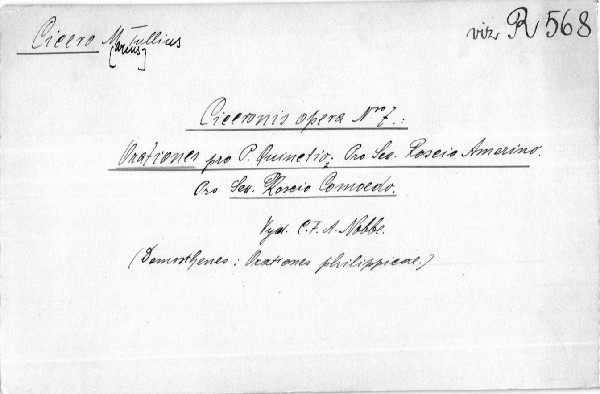 Cicero M[arcus] Tullius
viz R 568
Ciceronis opera Nro 7.:
Orationes pro P. Quinctio; Pro Sex. Roscio Amerino.
Pro Sex. Roscio Comoedo.
Vyd. C. F. A. Nobbe.
(Demosthenes: Orationes philippicae.)